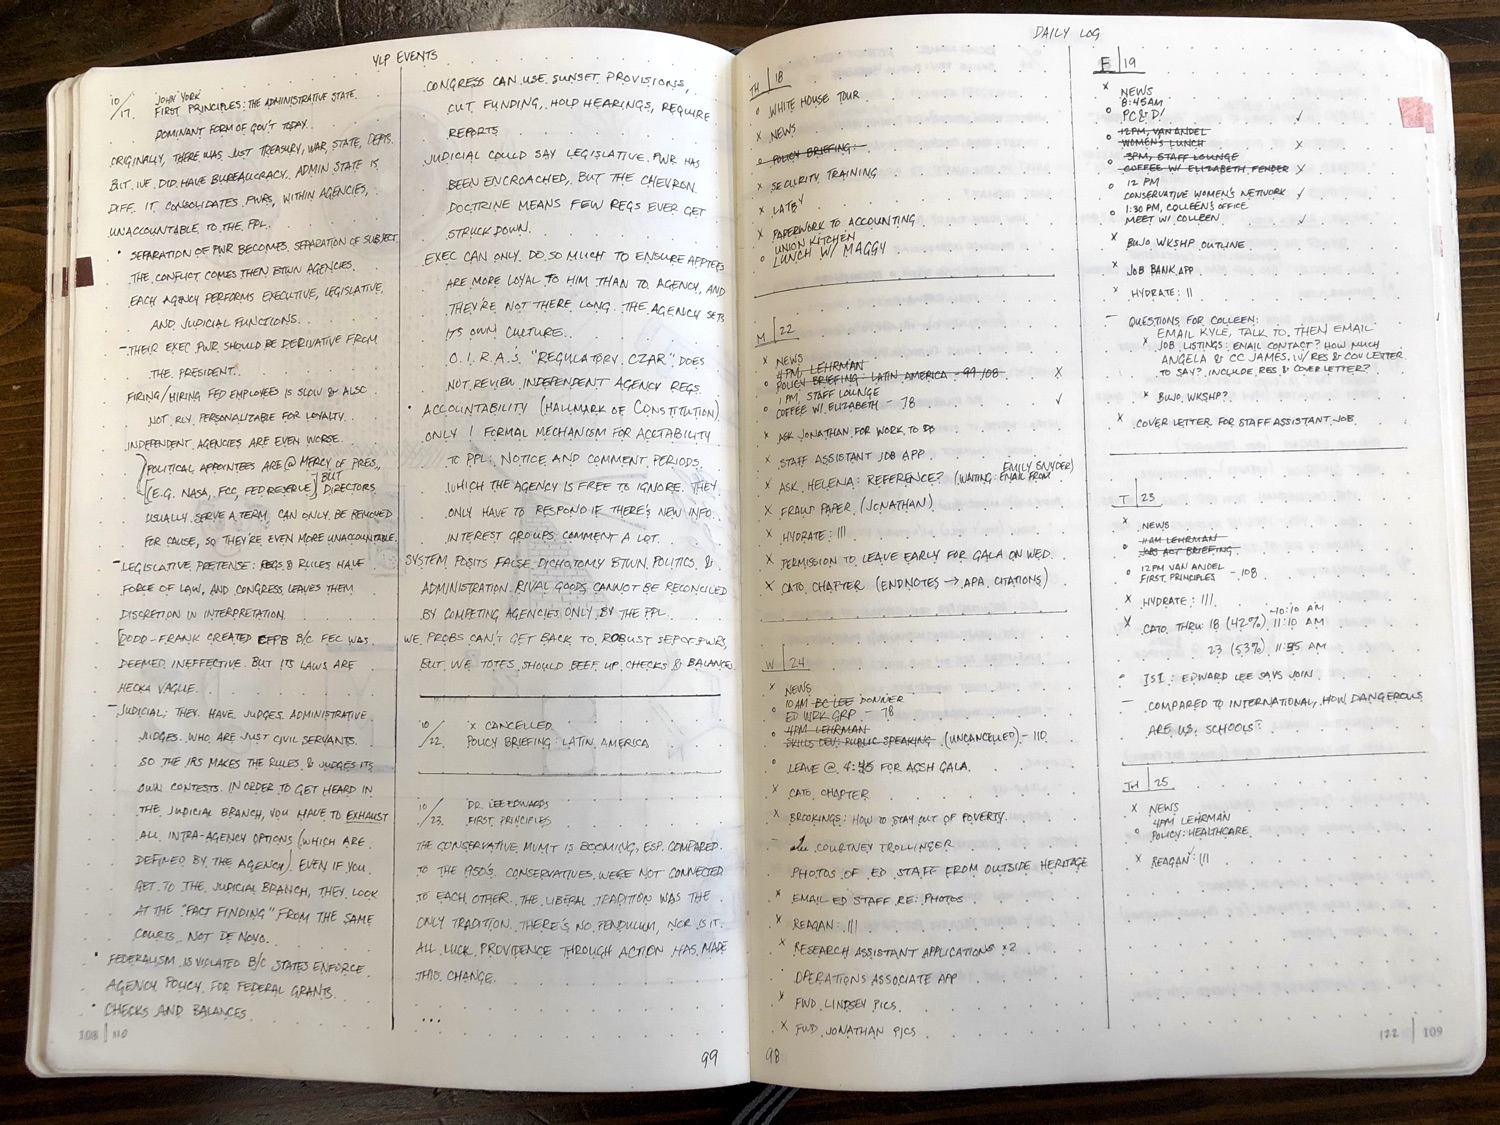 YLP EVENTS
10/17. JOHN YORK
FIRST PRINCIPLES: THE ADMINISTRATIVE STATE
DOMINANT FORM OF GOV'T TODAY.
ORIGINALLY, THERE WAS JUST TREASURY, WAR, STATE, DEPTS.
BUT WE DID HAVE BUREAUCRACY. ADMIN STATE IS
DIFF. IT CONSOLIDATES PWRS, WITHIN AGENCIES,
UNACCOUNTABLE TO THE PPL.
• SEPARATION OF PWR BECOMES SEPARATION OF SUBJECT.
THE CONFLICT COMES THEN BTWN AGENCIES.
EACH AGENCY PERFORMS EXECUTIVE, LEGISLATIVE,
AND JUDICIAL FUNCTIONS.
- THEIR EXEC PWR SHOULD BE DERIVATIVE FROM
THE PRESIDENT.
FIRING/HIRING FED EMPLOYEES IS SLOW & ALSO
NOT RLY PERSONALIZABLE FOR LOYALTY.
INDEPENDENT AGENCIES ARE EVEN WORSE.
POLITICAL APPOINTEES ARE @ MERCY OF PRES.,
BUT
[E.G. NASA, FCC, FED RESERVE] DIRECTORS
USUALLY SERVE A TERM, CAN ONLY BE REMOVED
FOR CAUSE, SO THEY'RE EVEN MORE UNACCOUNTABLE.
- LEGISLATIVE PRETENSE: REGS & RULES HAVE
FORCE OF LAW, AND CONGRESS LEAVES THEM
DISCRETION IN INTERPRETATION.
[DODD-FRANK CREATED CFPB B/C FEC WAS
DEEMED INEFFECTIVE. BUT ITS LAWS ARE
HECKA VAGUE.
- JUDICIAL: THEY HAVE JUDGES. ADMINISTRATIVE
JUDGES. WHO ARE JUST CIVIL SERVANTS.
SO THE IRS MAKES THE RULES & JUDGES ITS
OWN CONTESTS. IN ORDER TO GET HEARD IN
THE JUDICIAL BRANCH, YOU HAVE TO EXHAUST
ALL INTRA-AGENCY OPTIONS (WHICH ARE
DEFINED BY THE AGENCY). EVEN IF YOU
GET TO THE JUDICIAL BRANCH, THEY LOOK
AT THE "FACT FINDING" FROM THE SAME
COURTS, NOT DE NOVO.
• FEDERALISM IS VIOLATED B/C STATES ENFORCE
AGENCY POLICY FOR FEDERAL GRANTS.
• CHECKS AND BALANCES
108 | 110
CONGRESS CAN USE SUNSET PROVISIONS,
CUT FUNDING, HOLD HEARINGS, REQUIRE
REPORTS
JUDICIAL COULD SAY LEGISLATIVE PWR HAS
BEEN ENCROACHED, BUT THE CHEVRON
DOCTRINE MEANS FEW REGS EVER GET
STRUCK DOWN.
EXEC CAN ONLY DO SO MUCH TO ENSURE APPTEES
ARE MORE LOYAL TO HIM THAN TO AGENCY, AND
THEY'RE NOT THERE LONG. THE AGENCY SETS
ITS OWN CULTURE.
O.I.R.A.'S "REGULATORY CZAR" DOES
NOT REVIEW INDEPENDENT AGENCY REGS.
• ACCOUNTABILITY (HALLMARK OF CONSTITUTION)
ONLY 1 FORMAL MECHANISM FOR ACCTABILITY
TO PPL: NOTICE AND COMMENT PERIODS.
WHICH THE AGENCY IS FREE TO IGNORE. THEY
ONLY HAVE TO RESPOND IF THERE'S NEW INFO.
INTEREST GROUPS COMMENT A LOT.
SYSTEM POSITS FALSE DICHOTOMY BTWN POLITICS &
ADMINISTRATION. RIVAL GOODS CANNOT BE RECONCILED
BY COMPETING AGENCIES ONLY BY THE PPL.
WE PROBS CAN'T GET BACK TO ROBUST SEP OF PWRS,
BUT WE TOTES SHOULD BEEF UP CHECKS & BALANCES.
10/22. x CANCELLED
POLICY BRIEFING: LATIN AMERICA
10/23. DR. LEE EDWARDS
FIRST PRINCIPLES
THE CONSERVATIVE MVMT IS BOOMING, ESP. COMPARED
TO THE 1950'S. CONSERVATIVES WERE NOT CONNECTED
TO EACH OTHER. THE LIBERAL TRADITION WAS THE
ONLY TRADITION. THERE'S NO PENDULUM, NOR IS IT
ALL LUCK. PROVIDENCE THROUGH ACTION HAS MADE
THIS CHANGE.
...
99
DAILY LOG
TH | 18
o WHITE HOUSE TOUR
x NEWS
o POLICY BRIEFING
x SECURITY TRAINING
x LATBY
x PAPERWORK TO ACCOUNTING
UNION KITCHEN
o LUNCH W/ MAGGY
M | 22
x NEWS
4PM, LEHRMAN
o POLICY BRIEFING: LATIN AMERICA - 99/08 x
1 PM, STAFF LOUNGE
o COFFEE W/ ELIZABETH - 78 ✓
x ASK JONATHAN FOR WORK TO DO
x STAFF ASSISTANT JOB APP
EMILY SNYDER)
x ASK HELENA: REFERENCE? (WAITING: EMAIL FROM
x FRAUD PAPER (JONATHAN)
x HYDRATE: III
x PERMISSION TO LEAVE EARLY FOR GALA ON WED.
x CATO CHAPTER (ENDNOTES → APA CITATIONS)
W | 24
x NEWS
10AM BC LEE DONNER
o ED WRK GRP - 78
4PM LEHRMAN
o SKILLS DEV, PUBLIC SPEAKING (UNCANCELLED) - 110
o LEAVE @ 4:45 FOR ACSH GALA.
x CATO CHAPTER
x BROOKINGS: HOW TO STAY OUT OF POVERTY
- COURTNEY TROLLINGER
PHOTOS OF ED STAFF FROM OUTSIDE HERITAGE
x EMAIL ED STAFF RE: PHOTOS
x REAGAN: III
x RESEARCH ASSISTANT APPLICATIONS x2
· OPERATIONS ASSOCIATE APP
x FWD LINDSEY PICS
x FWD JONATHAN PICS
98
F | 19
x NEWS
8:45AM
o PC & D! ✓
12PM, VAN ANDEL
o WOMEN'S LUNCH x
3PM, STAFF LOUNGE
o COFFEE W/ ELIZABETH FENDER x
12 PM
o CONSERVATIVE WOMEN'S NETWORK ✓
1:30 PM, COLLEEN'S OFFICE
o MEET W/ COLLEEN ✓
x BUJO WKSHP OUTLINE
x JOB BANK APP
x HYDRATE: II
- QUESTIONS FOR COLLEEN:
EMAIL KYLE, TALK TO, THEN EMAIL
x JOB LISTINGS: EMAIL CONTACT? HOW MUCH
ANGELA & CC JAMES W/ RES & COV LETTER
TO SAY? INCLUDE RES & COVER LETTER?
x BUJO WKSHP?
x COVER LETTER FOR STAFF ASSISTANT JOB
T | 23
x NEWS
11AM LEHRMAN
o JOBS ACT BRIEFING
12PM VAN ANDEL
o FIRST PRINCIPLES - 108
x HYDRATE: III
-10:10 AM
x CATO THRU 18 (42%) 11:10 AM
23 (53%) 11:35 AM
° ISI: EDWARD LEE SAYS JOIN
- COMPARED TO INTERNATIONAL, HOW DANGEROUS
ARE U.S. SCHOOLS?
TH | 25
x NEWS
4PM LEHRMAN
o POLICY: HEALTHCARE
x REAGAN: III
122 | 109